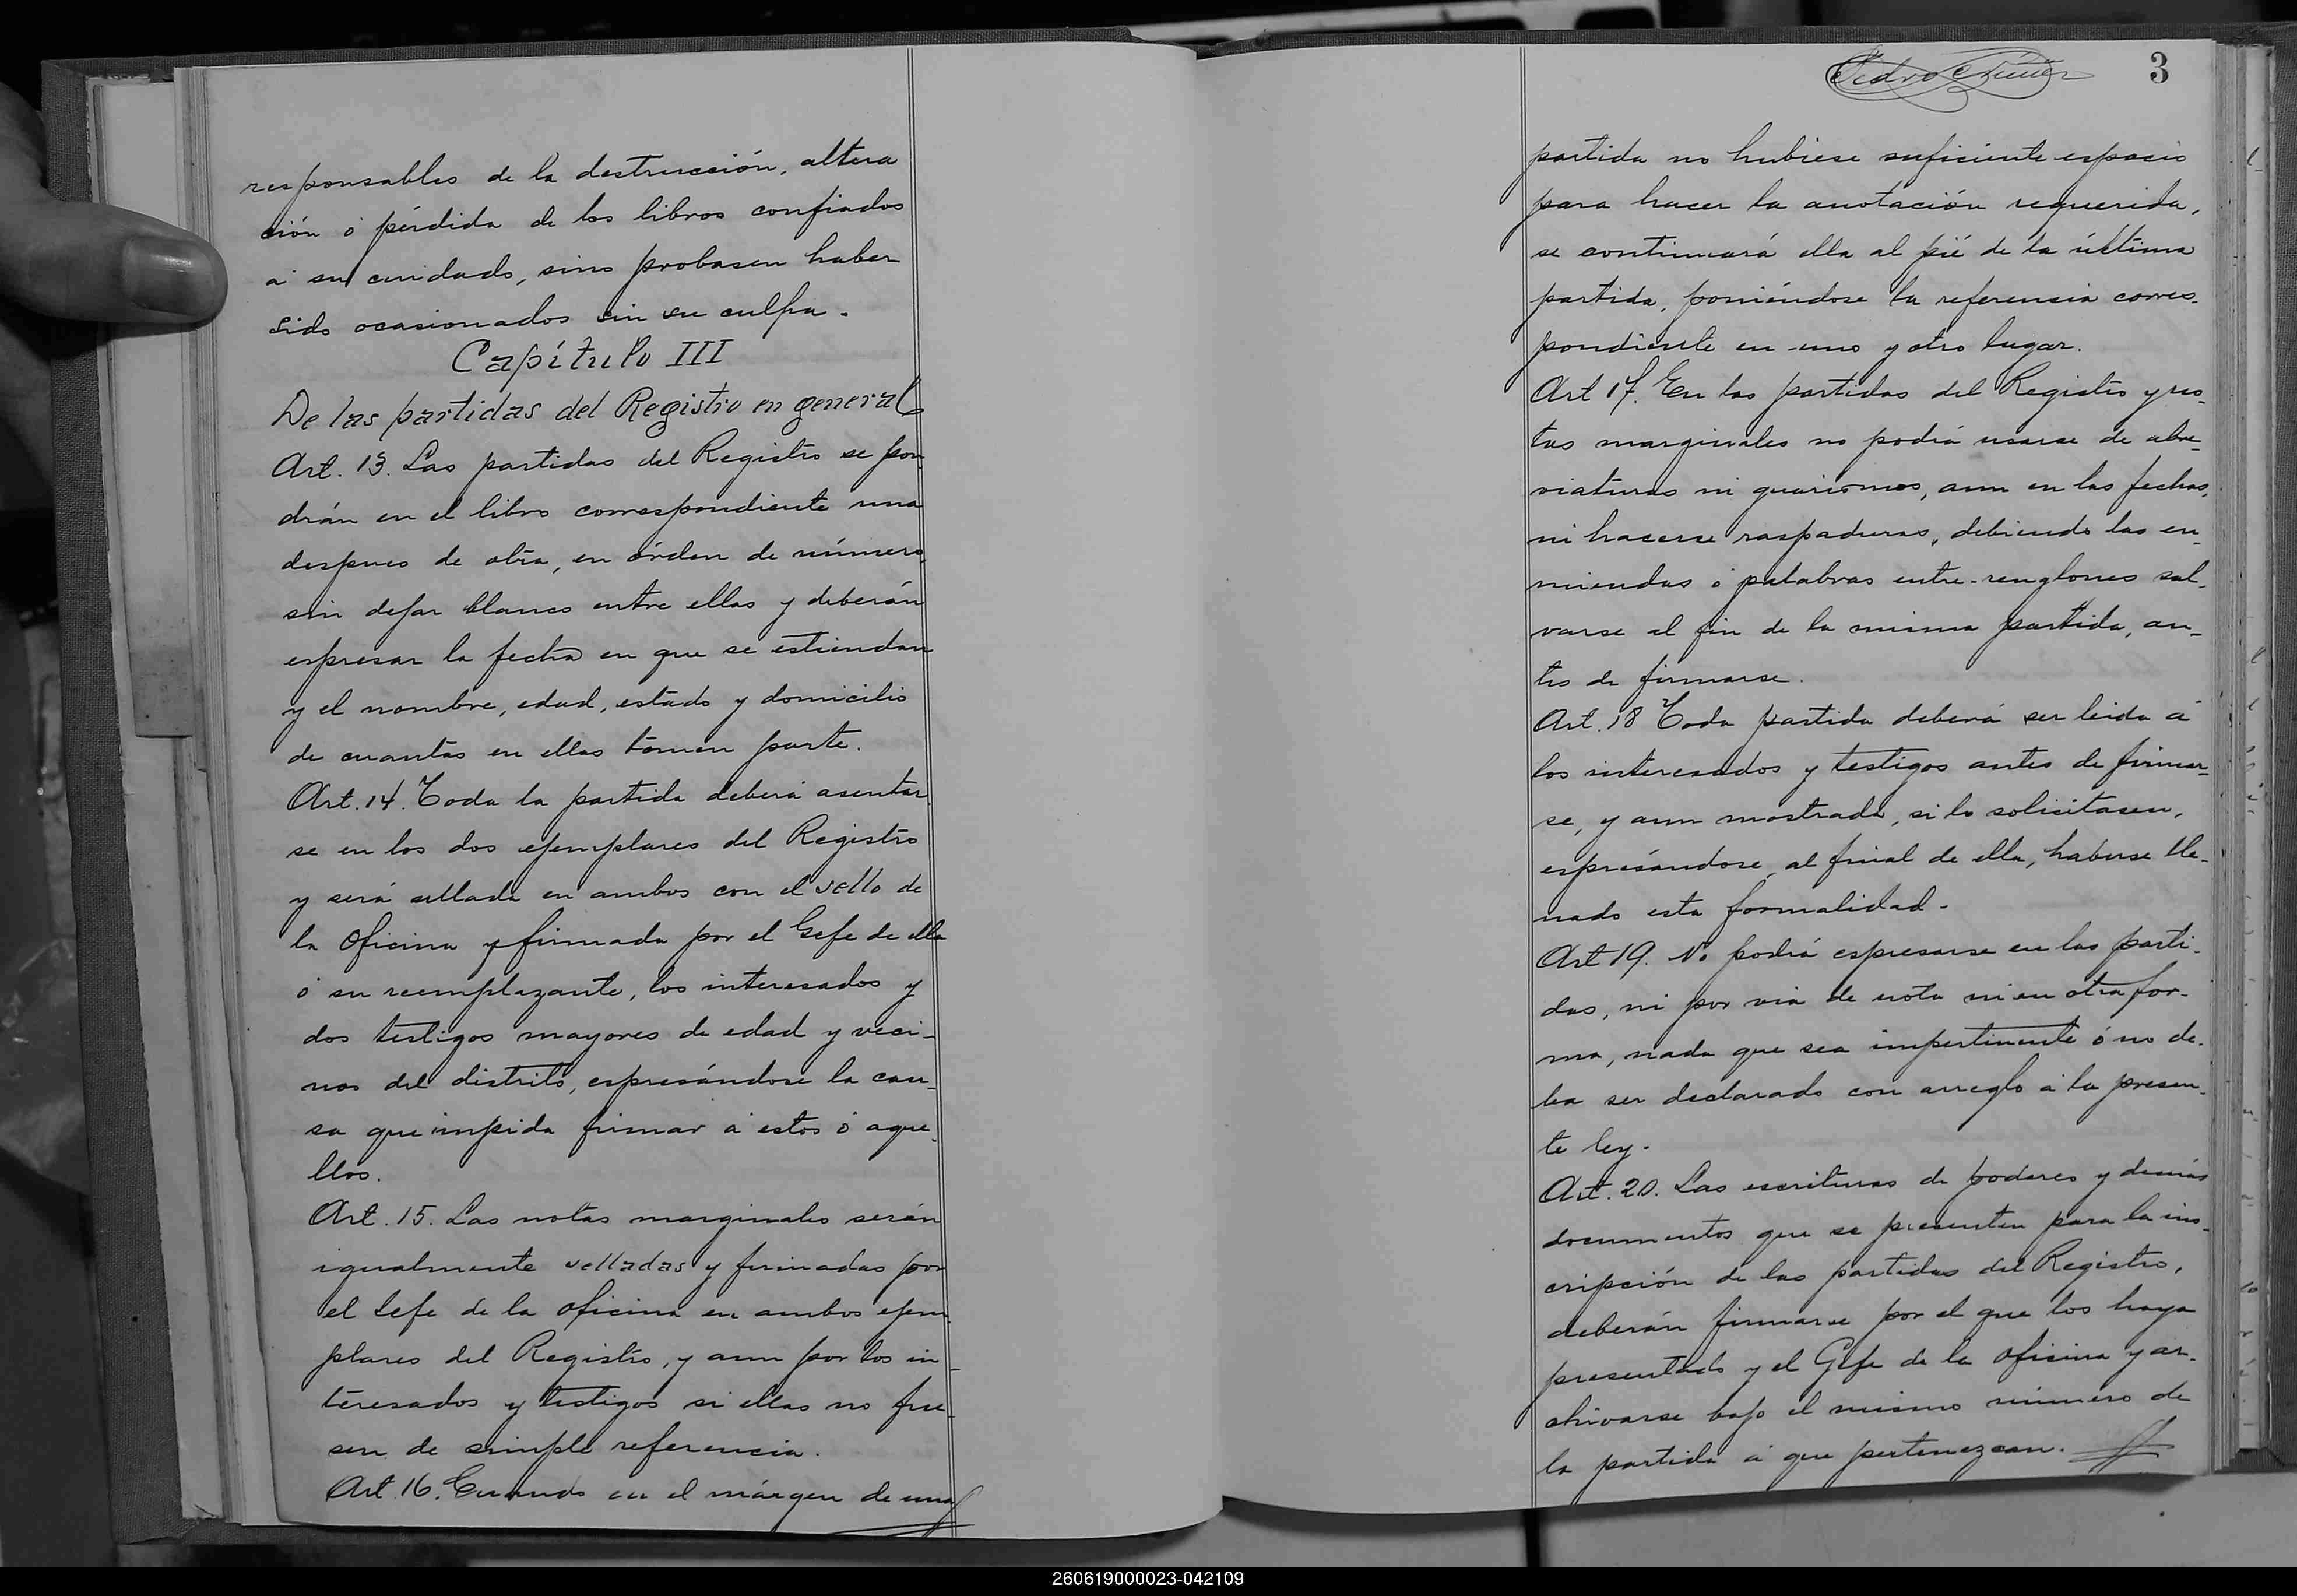 responsables de la destrucción, altera
ción ó pérdida de los libros confiados
á su cuidado, sino probasen haber
sido ocasionados sin su culpa.
Capítulo III
De las partidas del Registro en general
Art. 13. Las partidas del Registro se pon
drán en el libro correspondiente una
despues de otra, en órden de número,
sin dejar blanco entre ellas y deberán
espresar la fecha en que se estiendan
y el nombre, edad, estado y domicilio
de cuantos en ellas tomen parte.
Art. 14. Toda la partida deberá asentar
se en los dos ejemplares del Registro
y será sellada en ambos con el sello de
la Oficina y firmada por el Gefe de ella
ó su reemplazante, los interesados y
dos testigos mayores de edad y veci-
nos del distrito, espresándose la cau-
sa que impida firmar á estos ó aque-
llos.
Art. 15. Las notas marginales serán
igualmente selladas y firmadas por
el Gefe de la Oficina en ambos ejem
plares del Registro, y aun por los in-
teresados y testigos si ellas no fue-
sen de simple referencia.
Art. 16. Cuando en el márgen de una
3
partida no hubiese suficiente espacio
para hacer la anotación requerida,
se continuará ella al pié de la última
partida, poniéndose la referencia corres-
pondiente en uno y otro lugar.
Art 17. En las partidas del Registro y no-
tas marginales no podrá usarse de abre-
viaturas ni guarismos, aun en las fechas,
ni hacerse raspaduras, debiendo las en-
miendas ó palabras entre-renglones sal-
varse al fin de la misma partida, an-
tes de firmarse.
Art. 18 Toda partida deberá ser leida á
los interesados y testigos antes de firmar-
se, y aun mostrada, si lo solicitasen,
espresándose, al final de ella, haberse lle-
nado esta formalidad.
Art 19. No podrá espresarse en las parti-
das, ni por via de nota ni en otra for-
ma, nada que sea impertinente ó no de-
ba ser declarado con arreglo á la presen-
te ley.
Art. 20. Las escrituras de poderes y demás
documentos que se presenten para la ins-
cripción de las partidas del Registro,
deberán firmarse por el que los haya
presentado y el Gefe de la Oficina y ar-
chivarse bajo el mismo número de
la partida á que pertenezcan.
260619000023-042109